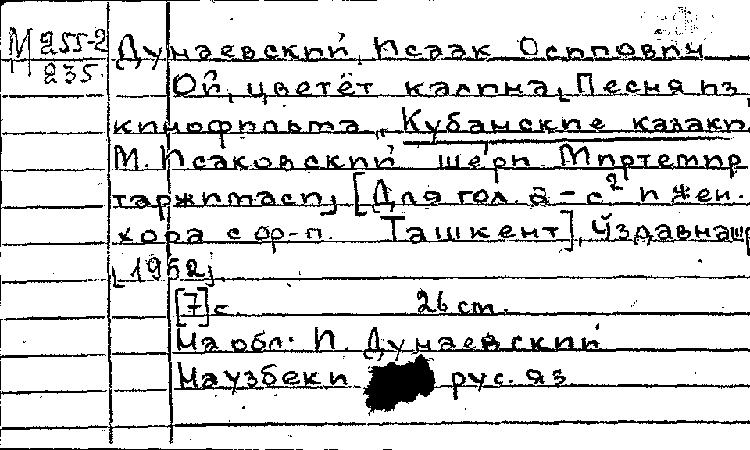 М 255-2
235
Дунаевский, Исаак Осипович
Ой, цветёт калина, Песня из
кинофильма „Кубанские казаки
М. Исаковский шеъри. Миртемир
таржимаси, [Для гол. a - c² и жен.
хора с ф-п. Ташкент], Ўздавнашр
[1952]
[7] с. 26 cm.
На обл: И. Дунаевский
На узбеки рус. яз